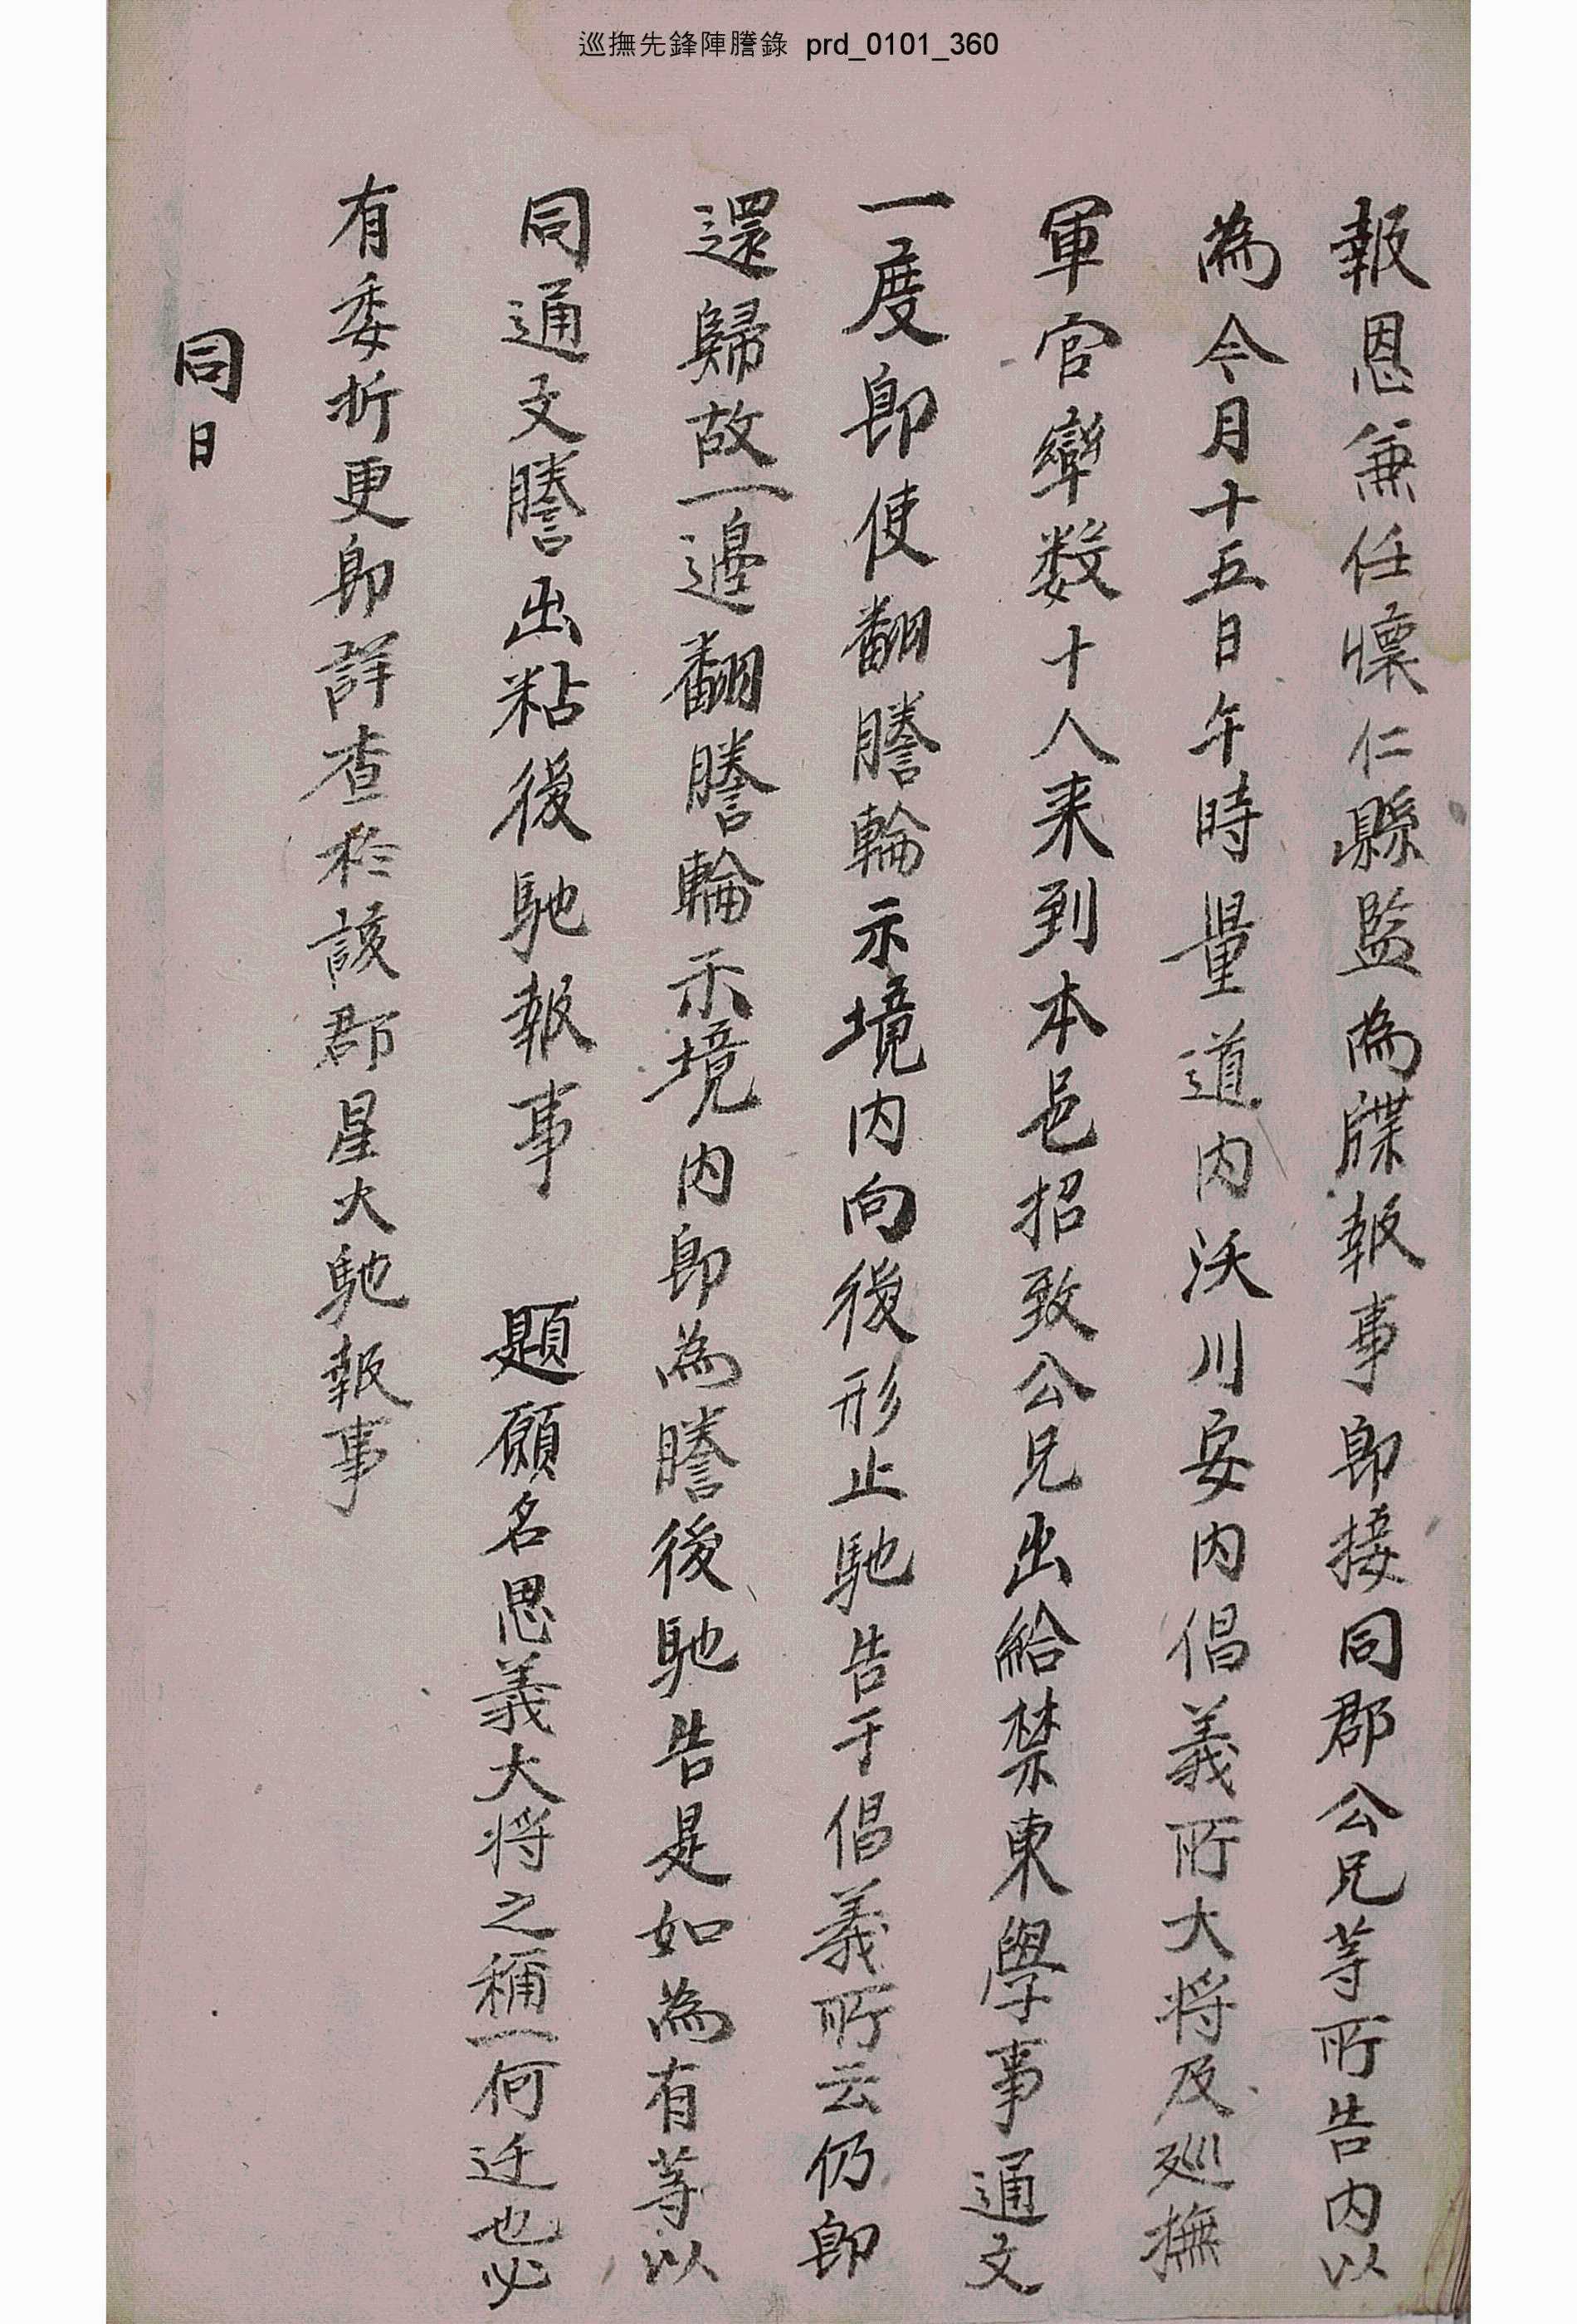 巡撫先鋒陣謄錄 prd_0101_360
報恩兼任懷仁縣監為牒報事即接同郡公兄等所告内以
為今月十五日午時量道内沃川安内倡義所大将及巡撫
軍官率数十人来到本邑招致公兄出給禁東學事通文
一度即使翻謄輪示境内向後形止馳告于倡義所云仍即
還歸故一邊翻謄輪示境内即為謄後馳告是如為有等以
同通文謄出粘後馳報事 題顧名思義大将之稱一何迂也必
有委折更即詳査於該郡星火馳報事
同日